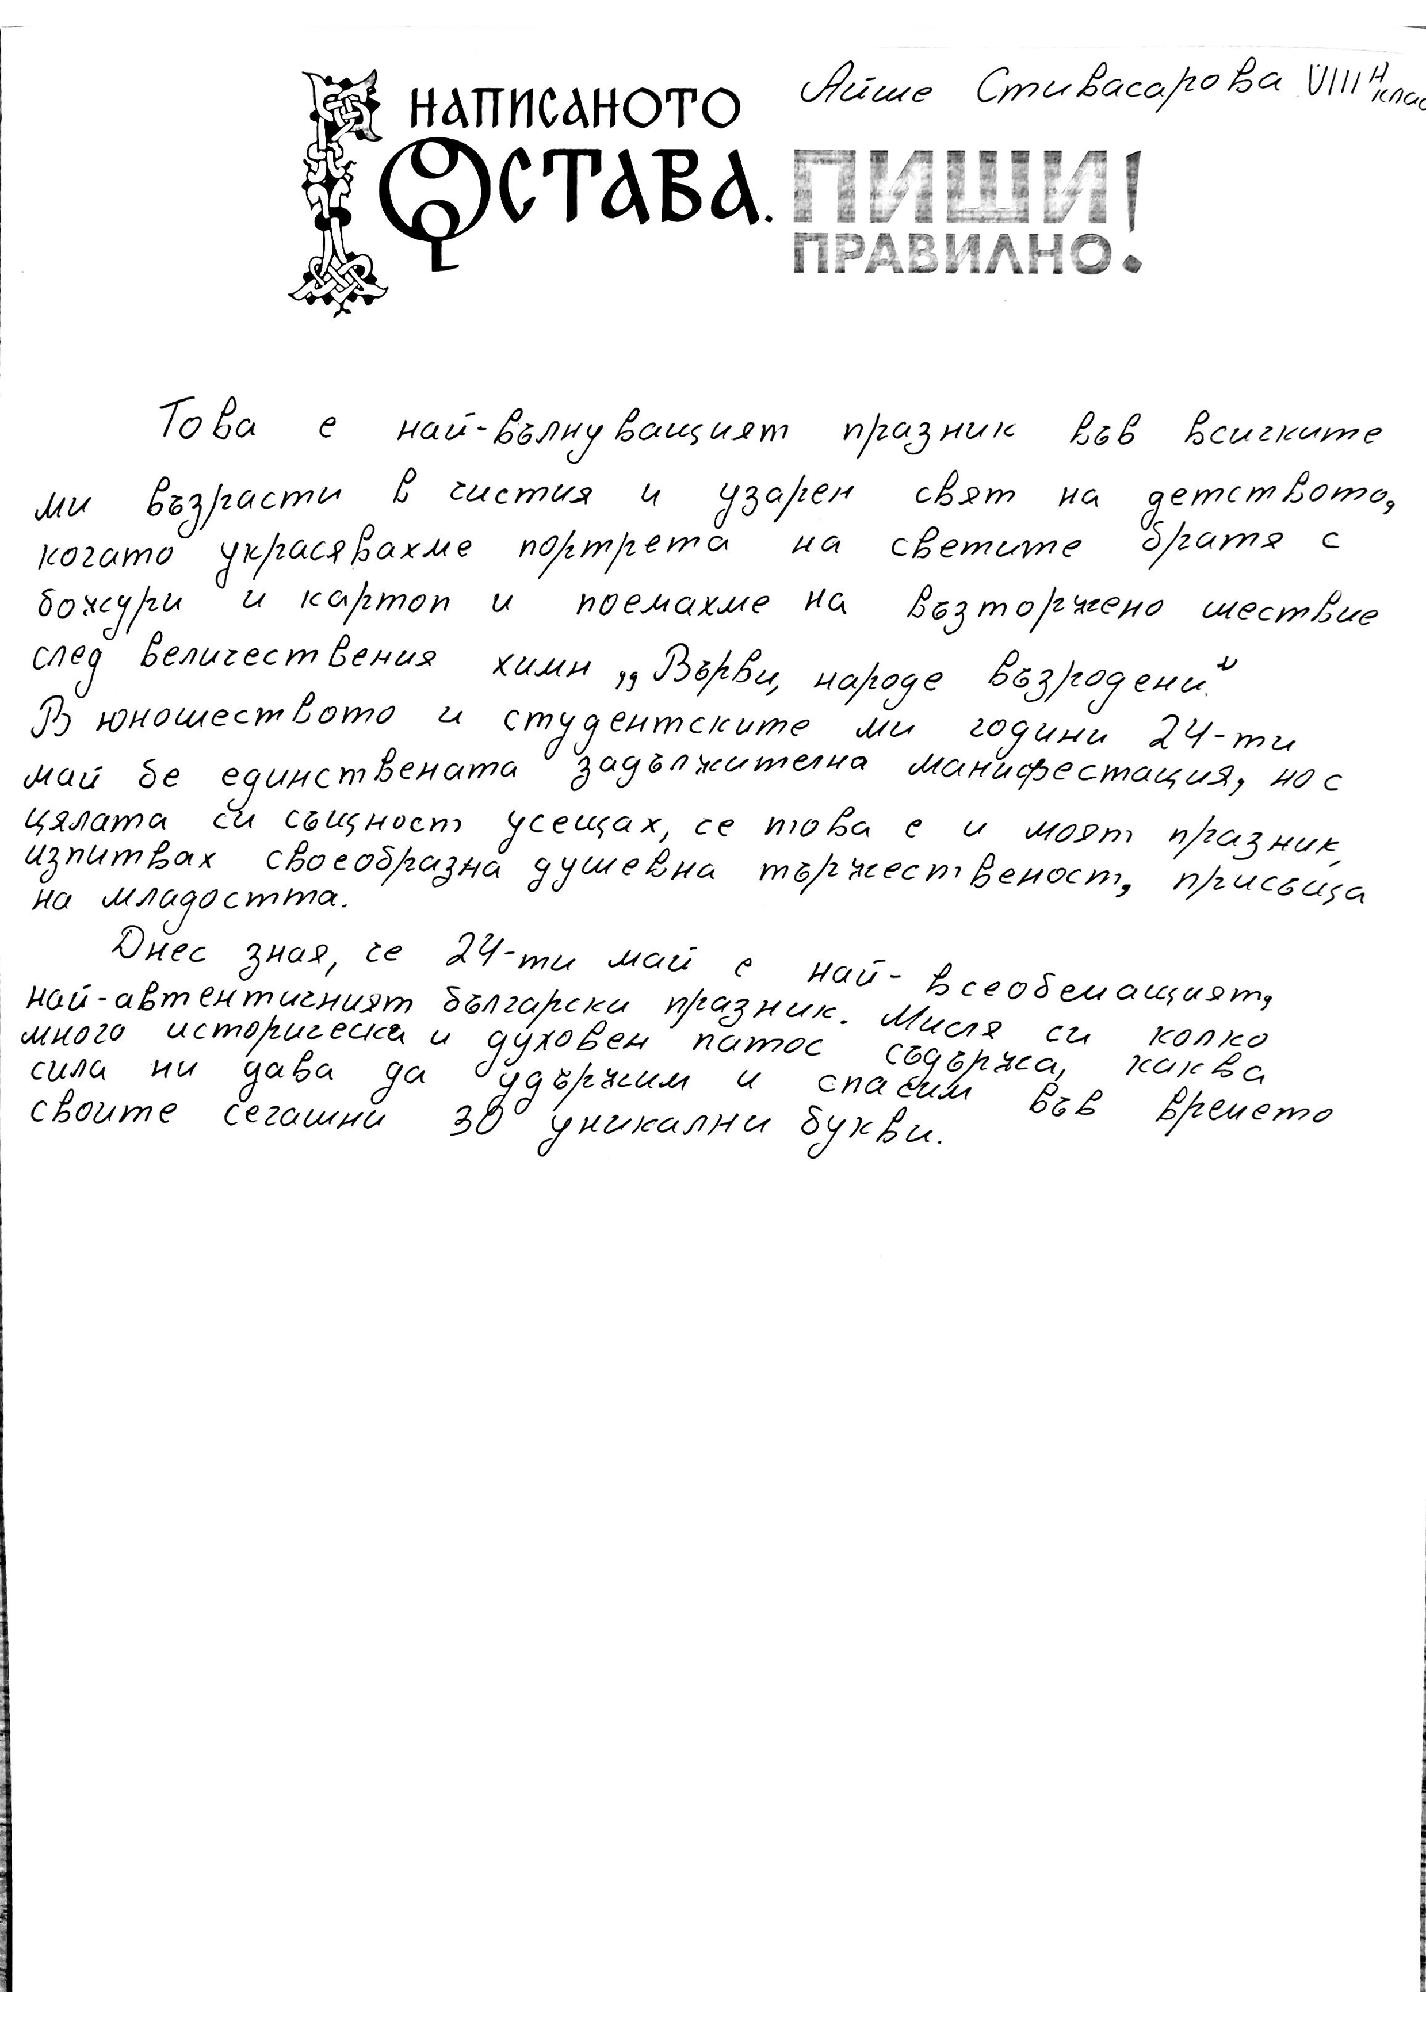 Айше Стивасарова VIII Н клас
НАПИСАНОТО
ОСТАВА.
ПИШИ
ПРАВИЛНО!
Това е най-вълнуващият празник във всичките
ми възрасти в чистия и узарен свят на детството,
когато украсявахме портрета на светите братя с
божури и картоп и поемахме на възторжено шествие
след величествения химн „Върви, народе възродени“.
В юношеството и студентските ми години 24-ти
май бе единствената задължителна манифестация, но с
цялата си същност усещах, се това е и моят празник,
изпитвах своеобразна душевна тържественост, присъща
на младостта.
Днес зная, че 24-ти май е най-всеобемащият,
най-автентичният български празник. Мисля си колко
много исторически и духовен патос съдържа, каква
сила ни дава да удържим и спасим във времето
своите сегашни 30 уникални букви.